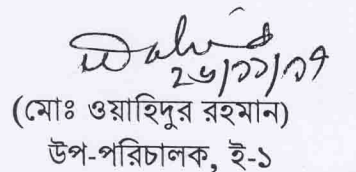 ২৬/১১/১৭
(মোঃ ওয়াহিদুর রহমান)
উপ-পরিচালক, ই-১